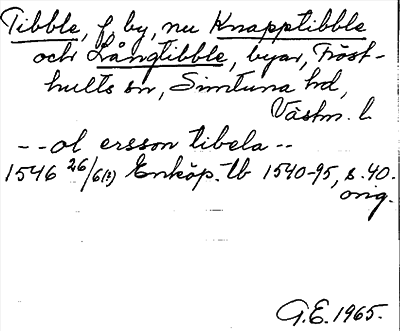 Tibble, f by, nu Knapptibble
och Långtibble, byar, Fröst-
hults sn, Simtuna hd,
Västm. l.
-- ol ersson tibela --
1546 26/6(?) Enköp. tb 1540-95, s. 40.
orig.
G.E. 1965.